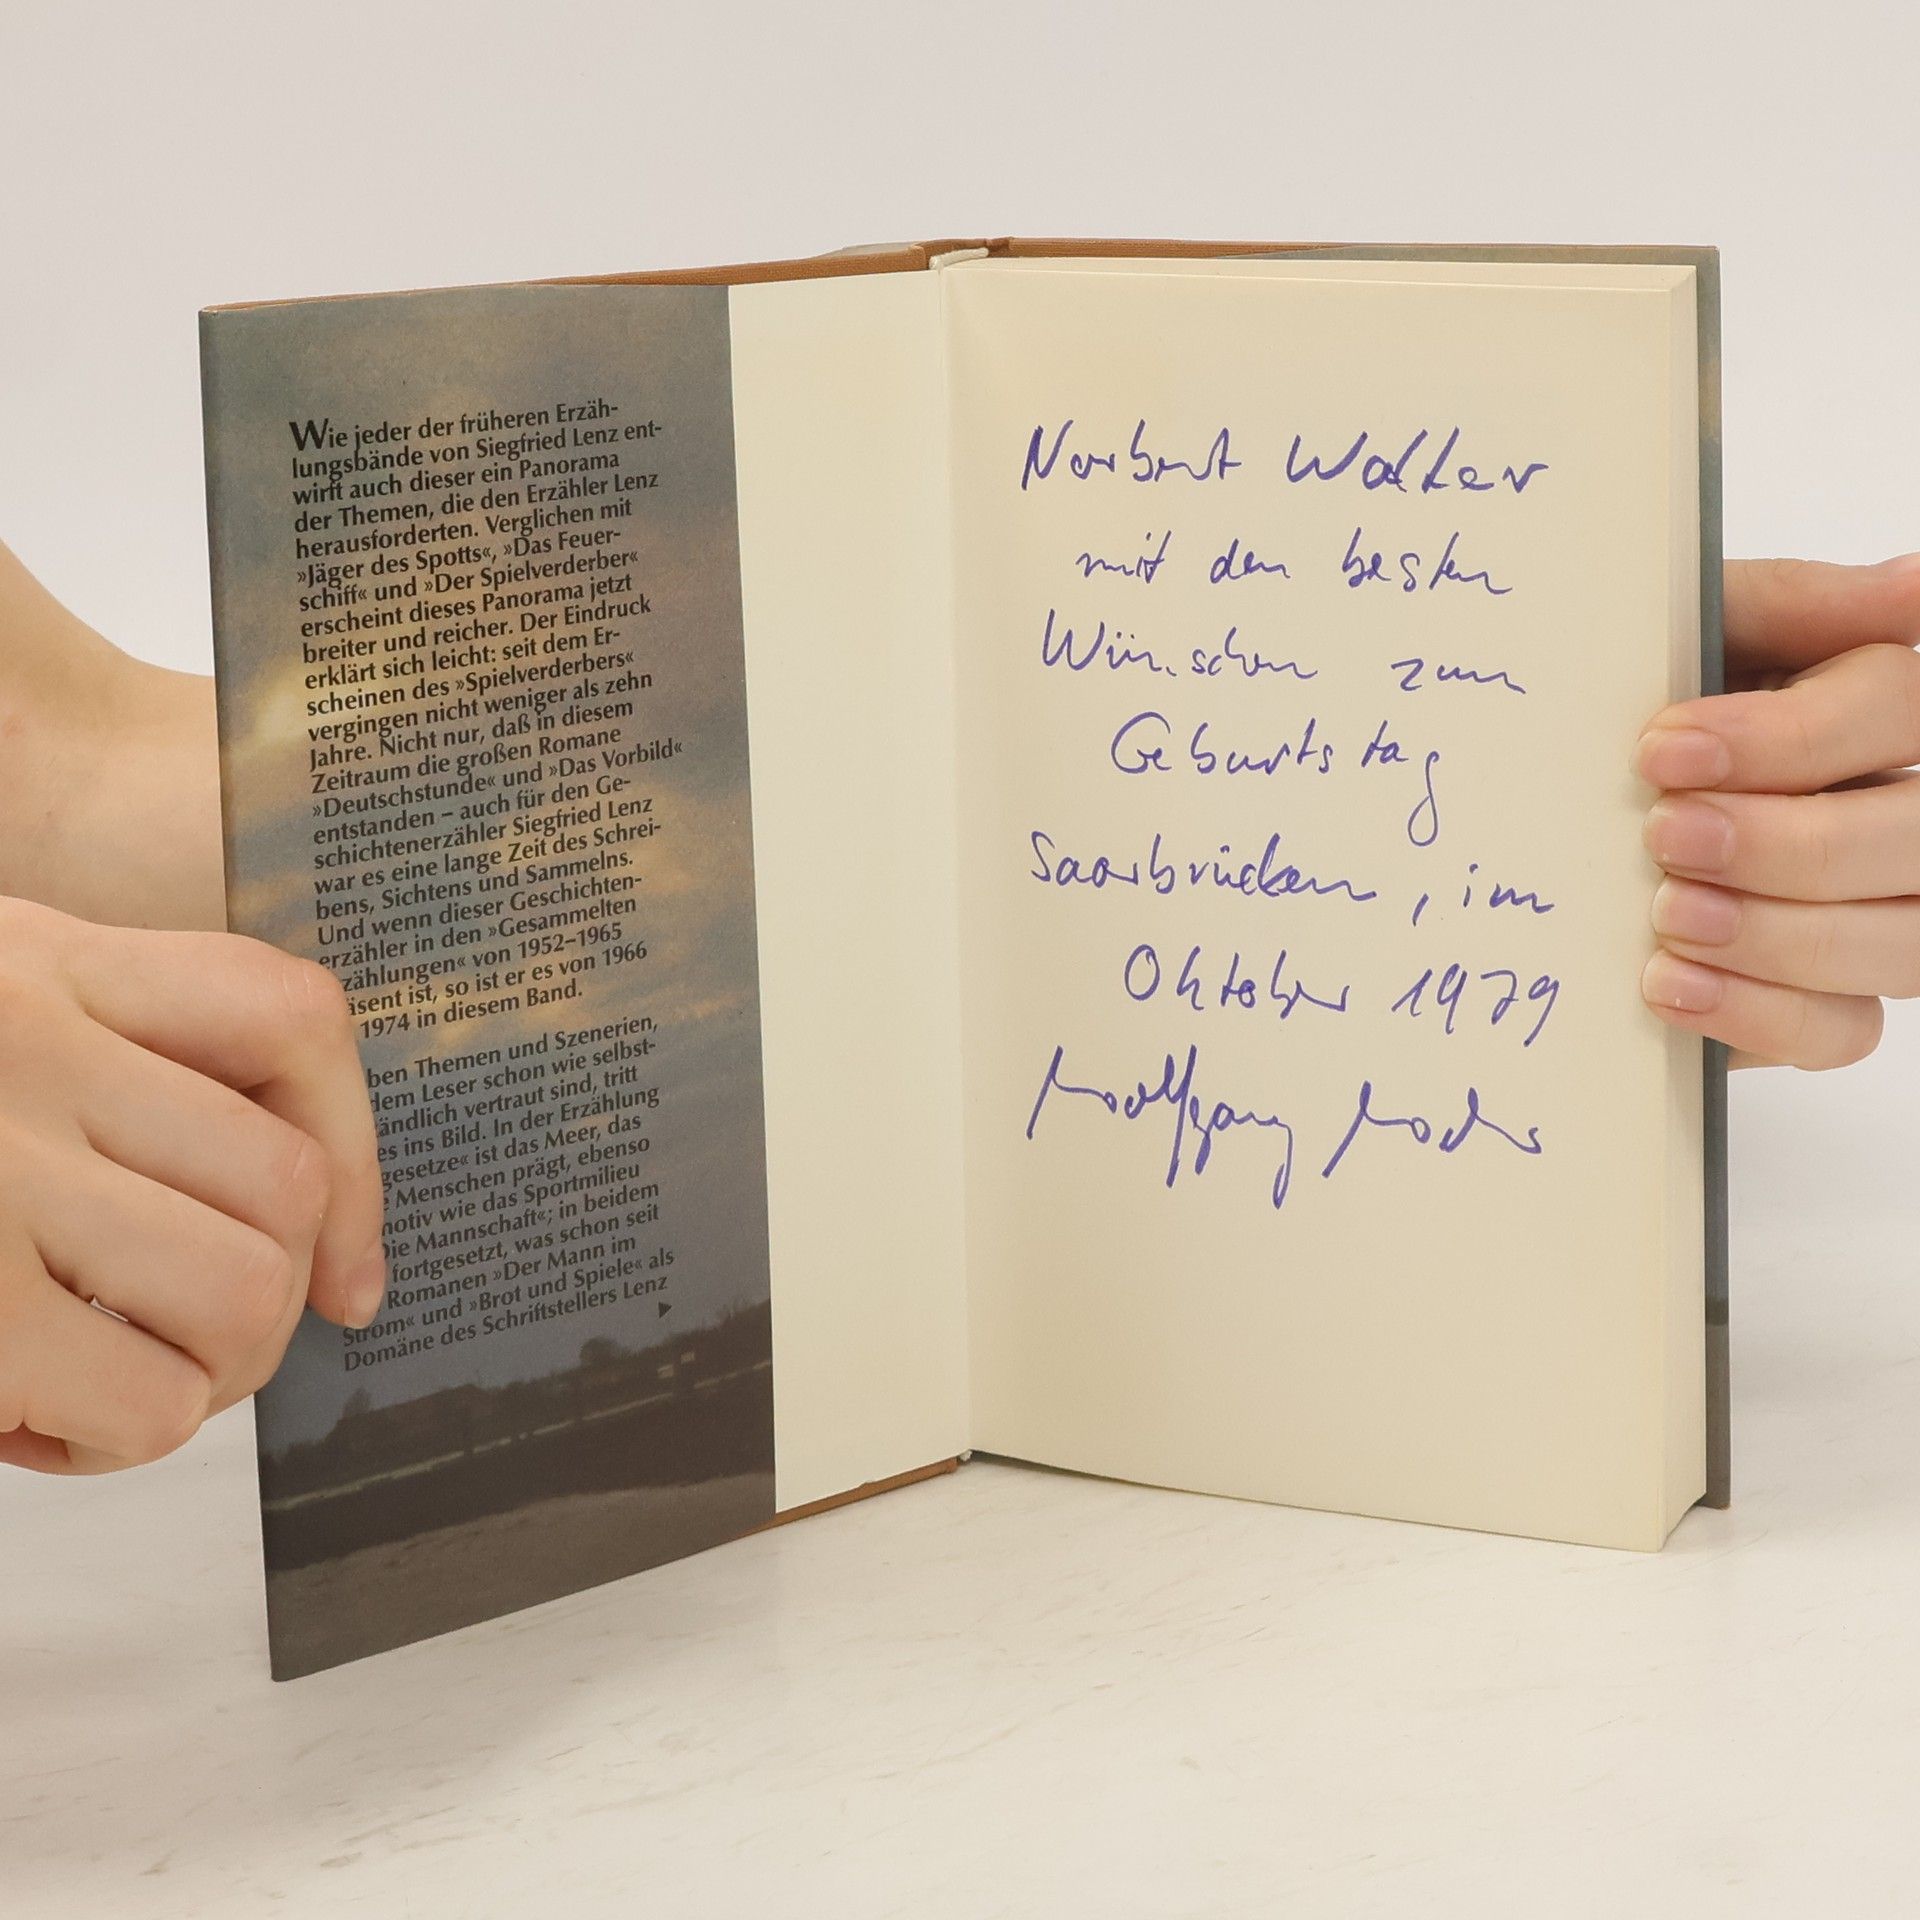 Wie jeder der früheren Erzäh-
lungsbände von Siegfried Lenz ent-
wirft auch dieser ein Panorama
der Themen, die den Erzähler Lenz
herausforderten. Verglichen mit
»Jäger des Spotts«, »Das Feuer-
schiff« und »Der Spielverderber«
erscheint dieses Panorama jetzt
breiter und reicher. Der Eindruck
erklärt sich leicht: seit dem Er-
scheinen des »Spielverderbers«
vergingen nicht weniger als zehn
Jahre. Nicht nur, daß in diesem
Zeitraum die großen Romane
»Deutschstunde« und »Das Vorbild«
entstanden – auch für den Ge-
schichtenerzähler Siegfried Lenz
war es eine lange Zeit des Schrei-
bens, Sichtens und Sammelns.
Und wenn dieser Geschichten-
erzähler in den »Gesammelten
zählungen« von 1952–1965
äsent ist, so ist er es von 1966
1974 in diesem Band.
ben Themen und Szenerien,
dem Leser schon wie selbst-
ändlich vertraut sind, tritt
es ins Bild. In der Erzählung
gesetze« ist das Meer, das
Menschen prägt, ebenso
motiv wie das Sportmilieu
Die Mannschaft«; in beidem
fortgesetzt, was schon seit
Romanen »Der Mann im
Strom« und »Brot und Spiele« als
Domäne des Schriftstellers Lenz
Norbert Walter
mit den besten
Wünschen zum
Geburtstag
Saarbrücken, im
Oktober 1979
Wolfgang